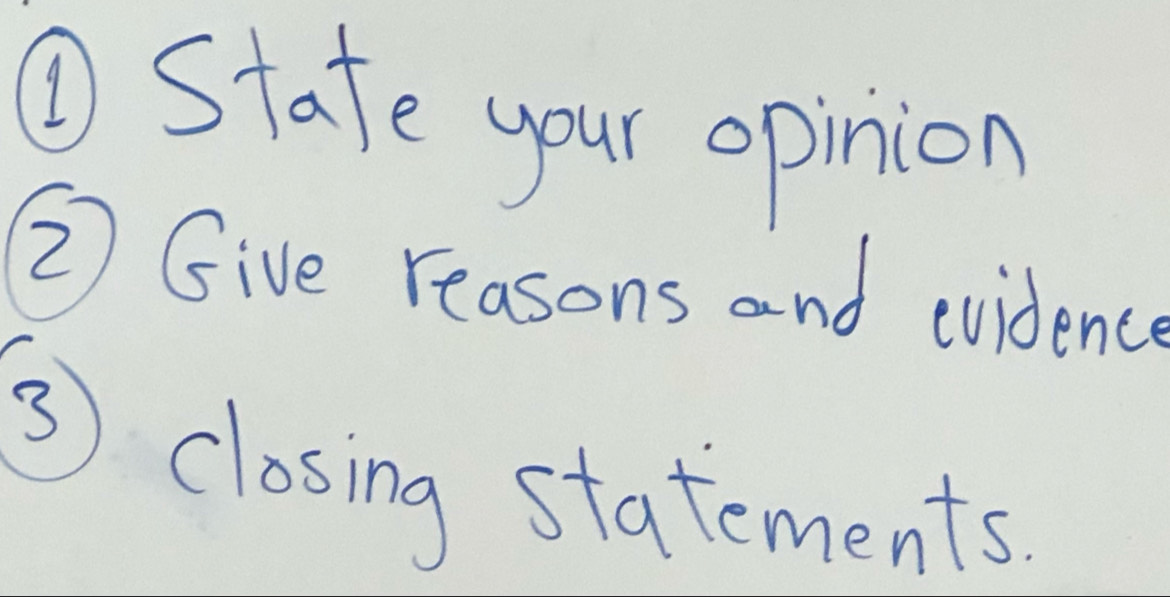 ① State your opinion
② Give reasons and evidence
③ closing statements.